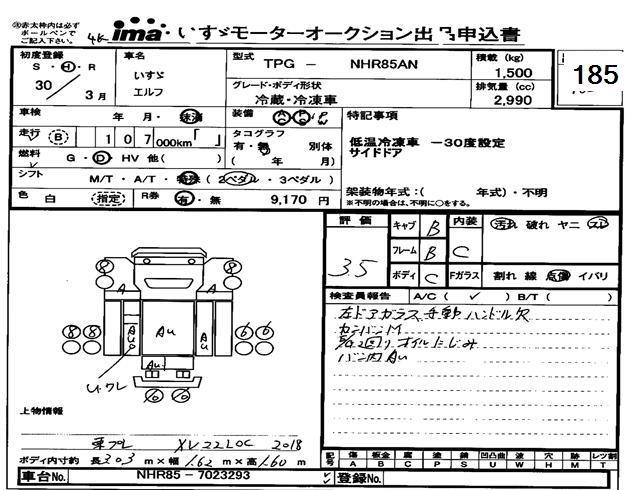 ㊟赤太枠内は必ず
ボールペンで
ご記入下さい。
ima いすゞモーターオークション出品申込書
185
初度登録
S・H・R
30 3月
車名
いすゞ
エルフ
型式 TPG - NHR85AN
グレード・ボディ形状
冷蔵・冷凍車
積載 (kg)
1,500
排気量 (cc)
2,990
車検 年・月・抹消
装備 A/C P/S P/W
特記事項
低温冷凍車 -30度設定
サイドドア
走行 B 107 000km「 」
タコグラフ
有・無 別体
( 年 月)
燃料 G・D HV 他( )
シフト M/T・A/T・特殊(2ペダル・3ペダル)
架装物年式:( 年式)・不明
※不明の場合は、不明に○をする。
色 白 (指定)
R券 有・無 9,170円
評価 3.5
キャブ B
フレーム B
ボディ C
内装 C
汚れ 破れ ヤニ スレ
Fガラス 割れ 線 点傷 イバリ
検査員報告 A/C( ✓ ) B/T( )
左ドアガラス手動ハンドル欠
カンバンM
オイルにじみ
バン内AU
8 8 8 8 6 6 6 6
A A A A A
AU AU AU
上物情報
東プレ XV22LOC 2018
ボディ内寸約 長303 m×幅1.62 m×高1.60 m
記号 傷A 板金B 腐C 塗P 錆S 凹凸曲U W 穴H 跡M レツ割T
車台No. NHR85-7023293
登録No.